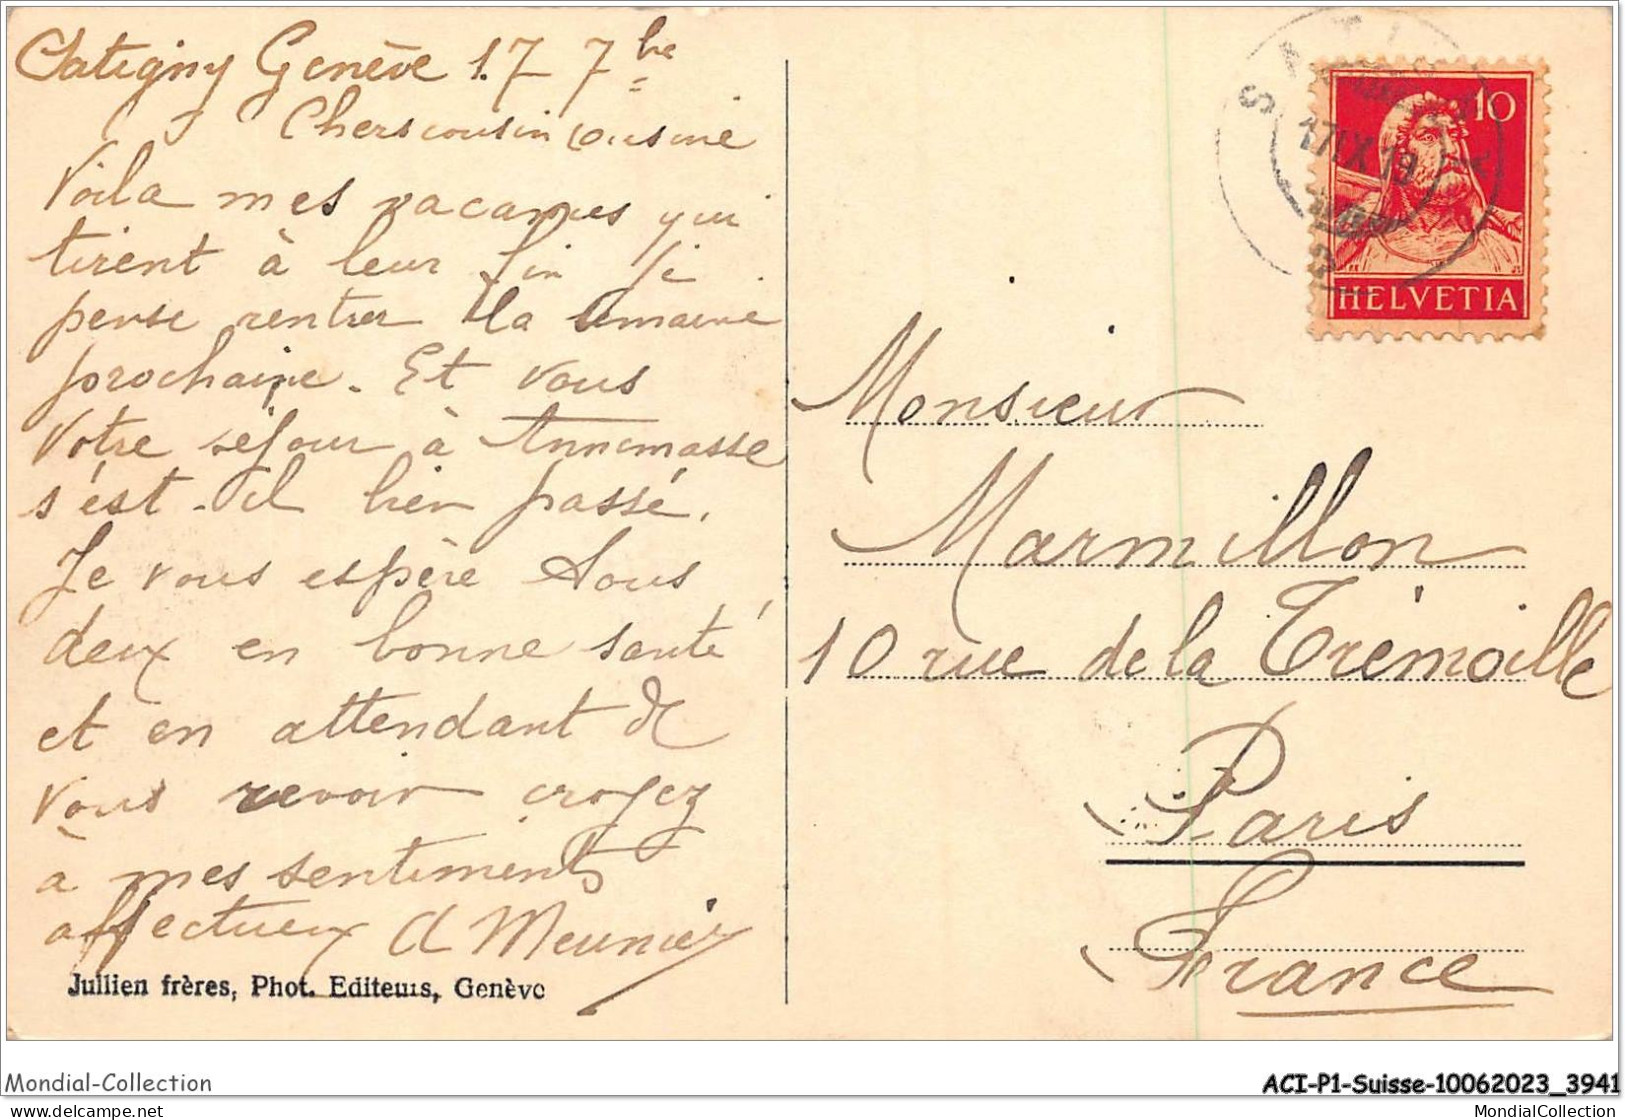 Satigny Genève 17 7bre
Chers cousin cousine
Voila mes vacances qui
tirent à leur fin je
pense rentrer la semaine
prochaine. Et vous
Votre séjour à Annemasse
s'est-il bien passé.
Je vous espère tous
deux en bonne santé
et en attendant de
vous revoir croyez
à mes sentiments
affectueux A Meunier
Jullien frères, Phot. Editeurs, Genève
17 IX 19
10
HELVETIA
Monsieur
Marmillon
10 rue de la Trémoille
Paris
France
Mondial-Collection
ACI-P1-Suisse-10062023_3941
www.delcampe.net
MondialCollection